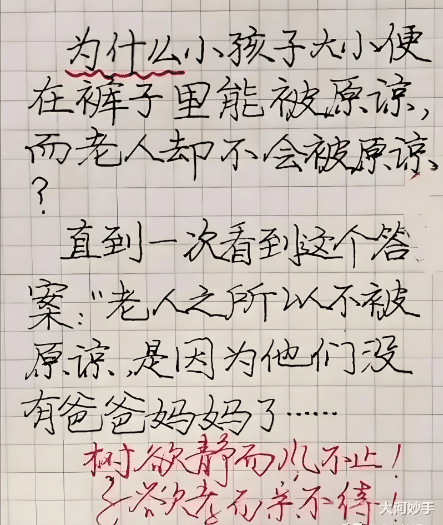 为什么小孩子大小便
在裤子里能被原谅,
而老人却不会被原谅
?
直到一次看到这个答
案:"老人之所以不被
原谅,是因为他们没
有爸爸妈妈了……
树欲静而风不止!
子欲孝而亲不待!
大河妙手